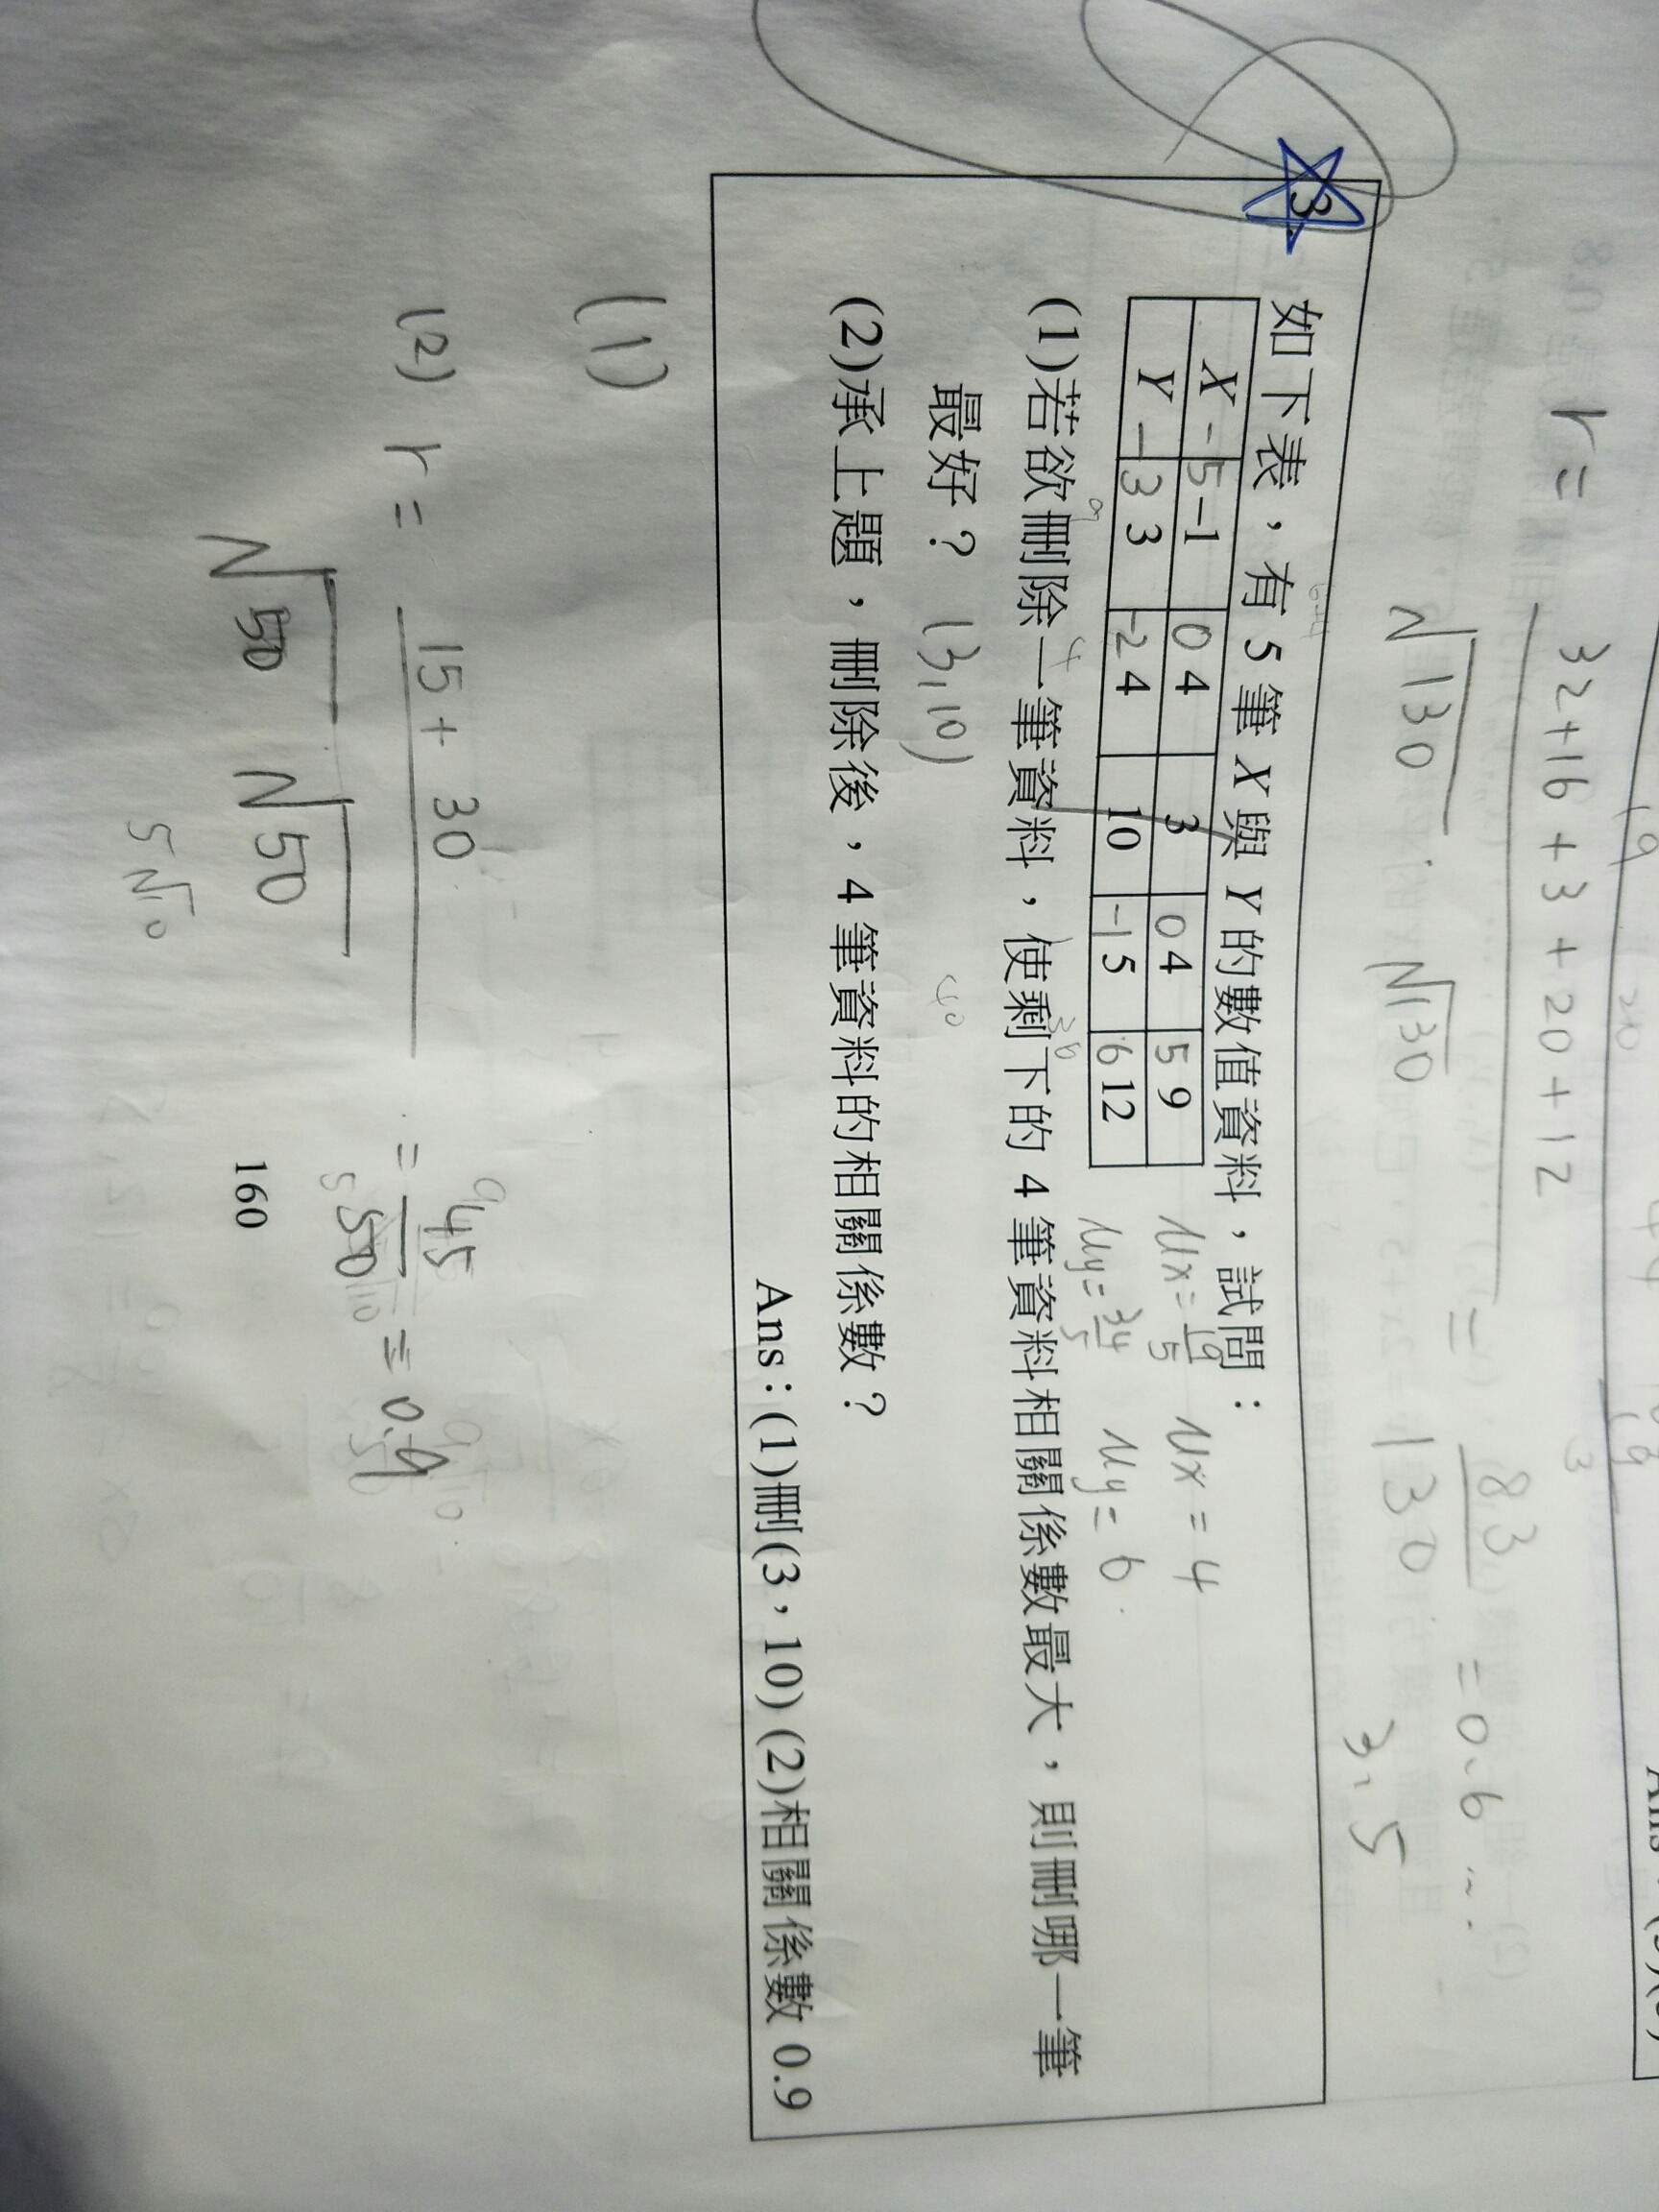 r = 32+16+3+20+12 / √130 √130 = 83 / 130 = 0.6...
3.5
3.
如下表，有 5 筆 X 與 Y 的數值資料，試問：
X -5 -1 0 4 3 0 4 5 9 μx = 19/5 μx = 4
Y -3 3 -2 4 10 -1 5 6 12 μy = 34/5 μy = 6
(1)若欲刪除一筆資料，使剩下的 4 筆資料相關係數最大，則刪哪一筆
最好？ (3,10)
(2)承上題，刪除後，4 筆資料的相關係數？
Ans：(1)刪(3，10) (2)相關係數 0.9
(1)
(2) r = 15 + 30 / √50 √50 = 45 / 50 = 0.9
5√10
160